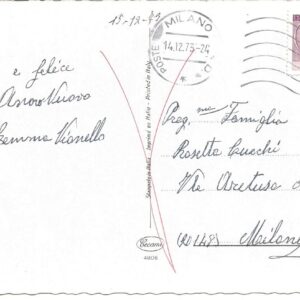 15-12-73
POSTE MILANO
14.12.73-24
e felice
Anno Nuovo
Gemma Vianello
Stampato in Italia - Imprimé en Italie - Printed in Italy
Cecami
Preg.ma Famiglia
Rosetta Cucchi
Via Aretusa
(20148) Milano